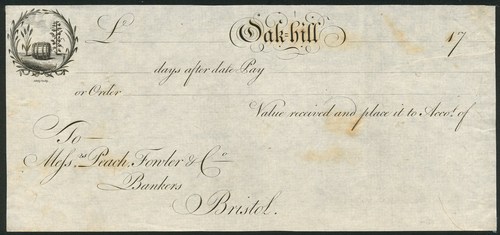 £ Oak-hill 17
days after date Pay
or Order
Value received and place it to Accot. of
To
Messrs. Peach, Fowler & Co
Bankers
Bristol.